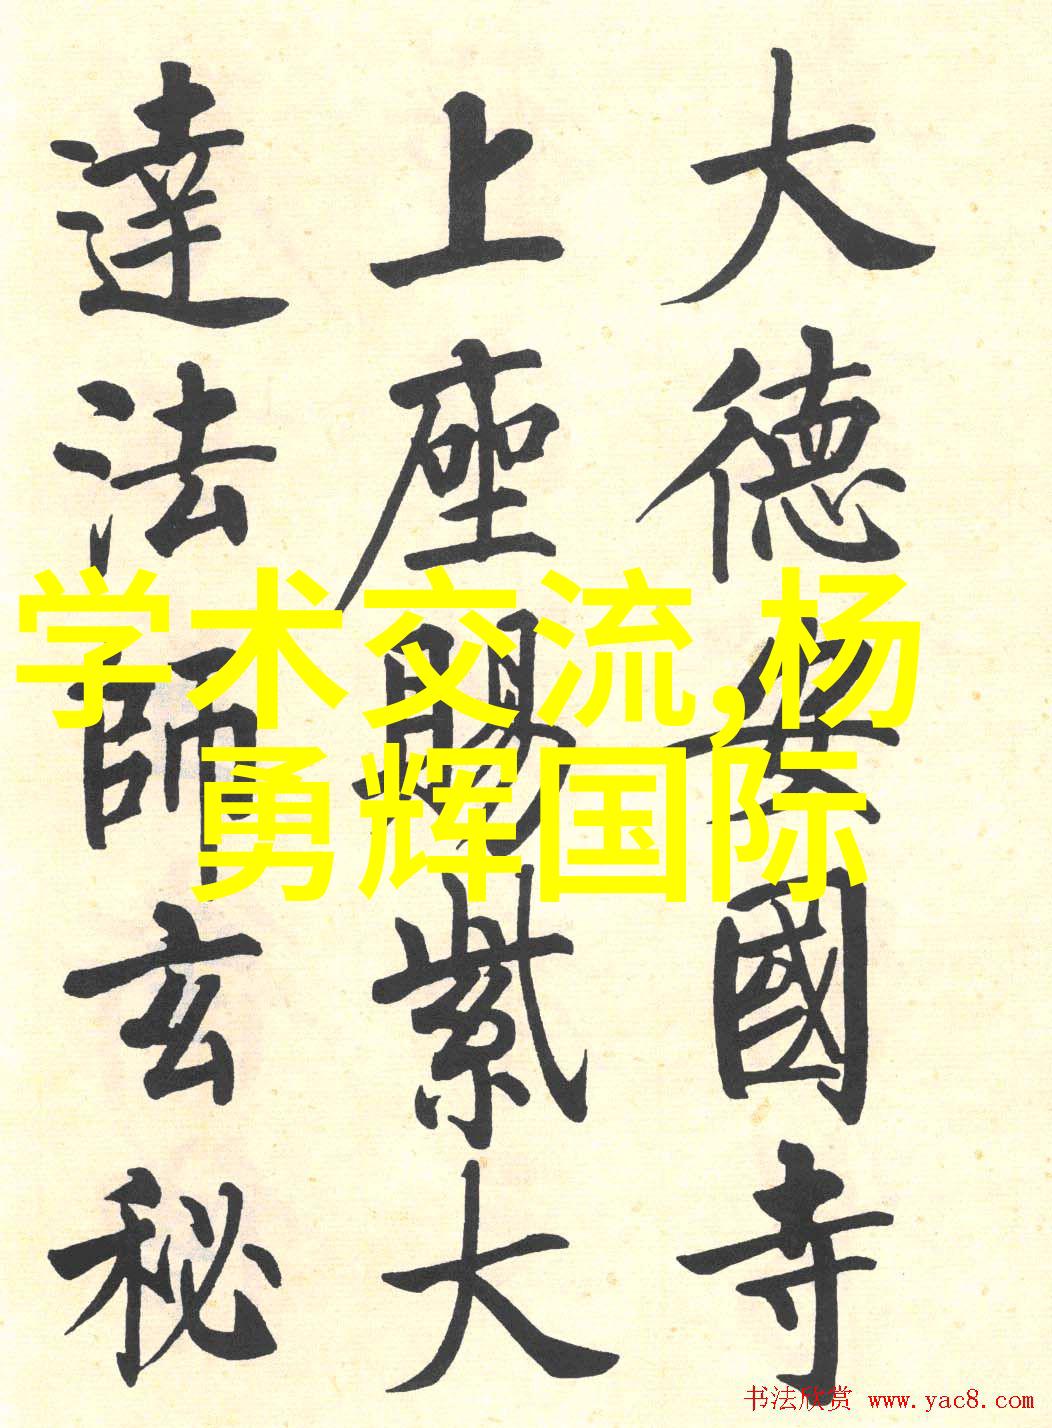 大德安國寺
上座賜紫大
達法師玄秘
学术交流,杨
勇辉国际
书法欣赏 www.yac8.com